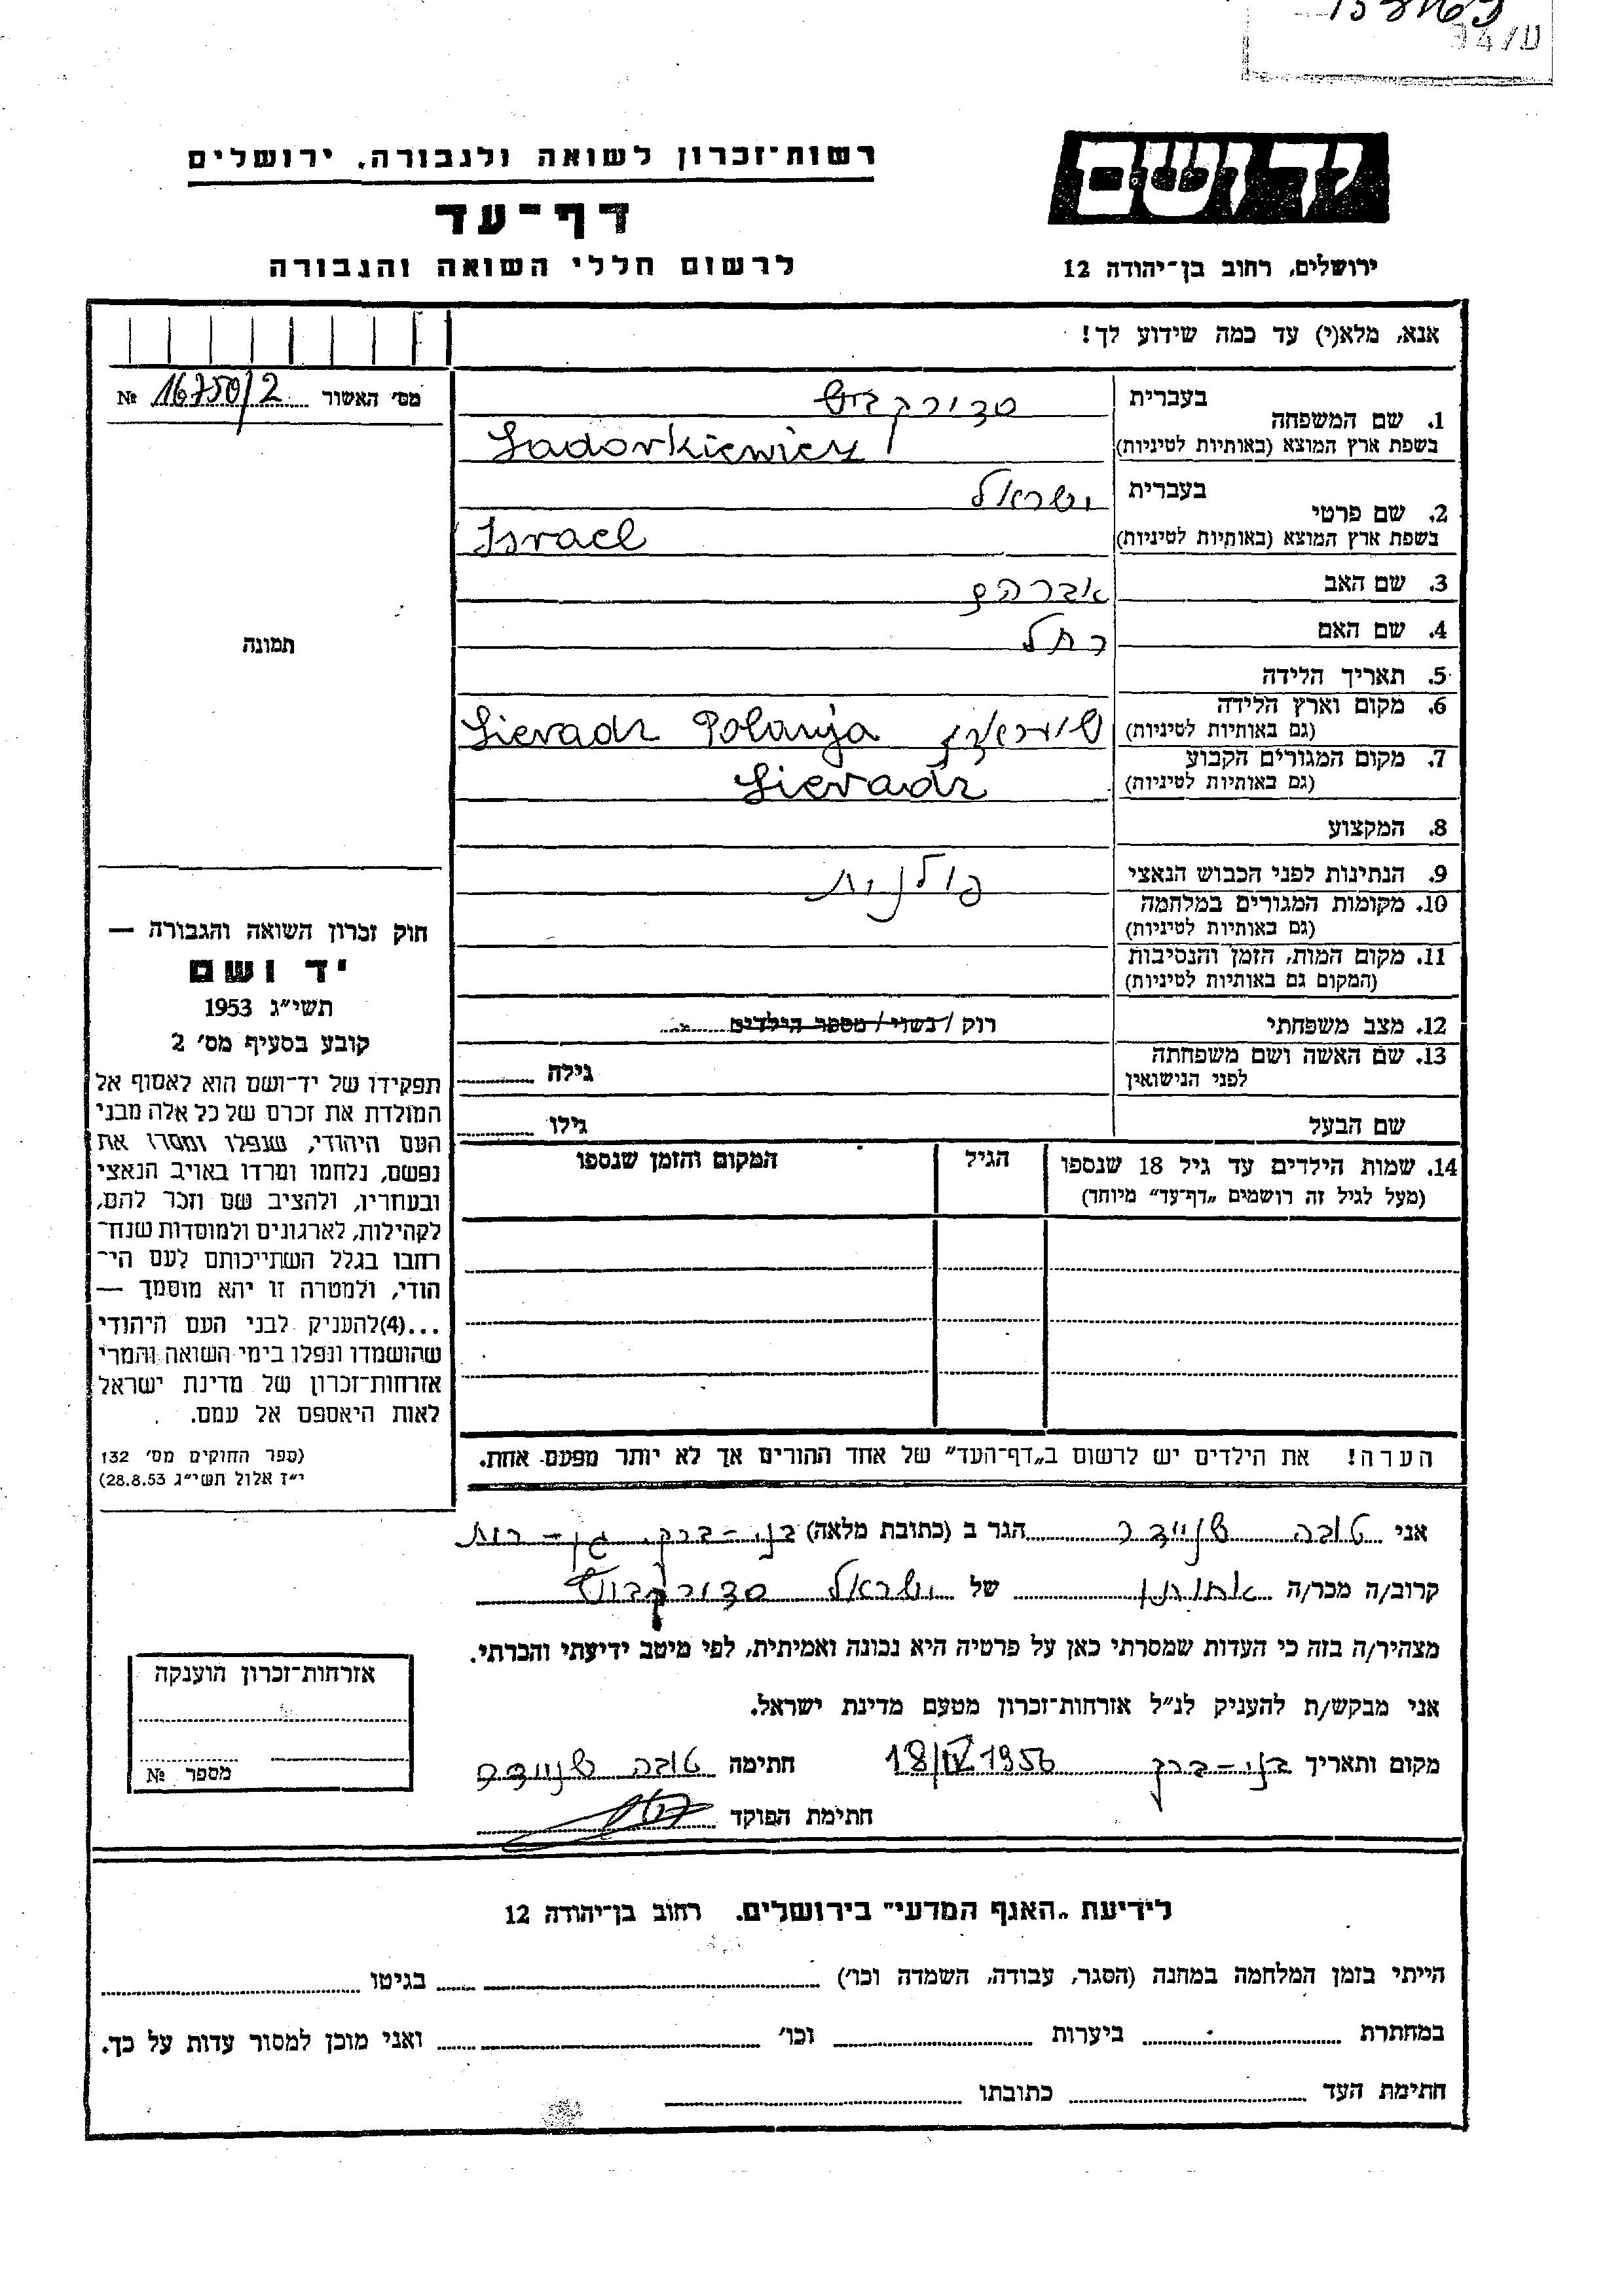 94/ש
רשות־זכרון לשואה ולגבורה, ירושלים
יד ושם
דף־עד
לרשום חללי השואה והגבורה
ירושלים, רחוב בן־יהודה 12
אנא, מלא(י) עד כמה שידוע לך!
מס׳ האשור 16750/2 №
בעברית
1. שם המשפחה
סדורקביץ
בשפת ארץ המוצא (באותיות לטיניות) Sadorkiewicz
בעברית ישראל
2. שם פרטי
בשפת ארץ המוצא (באותיות לטיניות) Israel
3. שם האב אברהם
4. שם האם רחל
תמונה
5. תאריך הלידה
6. מקום וארץ הלידה
(גם באותיות לטיניות) שיראדז Sieradz Polanja
7. מקום המגורים הקבוע
(גם באותיות לטיניות) Sieradz
8. המקצוע
9. הנתינות לפני הכבוש הנאצי פולנית
10. מקומות המגורים במלחמה
(גם באותיות לטיניות)
11. מקום המות, הזמן והנסיבות
(המקום גם באותיות לטיניות)
12. מצב משפחתי רוק / נשוי / מספר הילדים
13. שם האשה ושם משפחתה
לפני הנישואין גילה
שם הבעל גילו
14. שמות הילדים עד גיל 18 שנספו הגיל המקום והזמן שנספו
(מעל לגיל זה רושמים „דף־עד״ מיוחד)
חוק זכרון השואה והגבורה —
יד ושם
תשי״ג 1953
קובע בסעיף מס׳ 2
תפקידו של יד־ושם הוא לאסוף אל
המולדת את זכרם של כל אלה מבני
העם היהודי, שנפלו ומסרו את
נפשם, נלחמו ומרדו באויב הנאצי
ובעוזריו, ולהציב שם וזכר להם,
לקהילות, לארגונים ולמוסדות שנח־
רחבו בגלל השתייכותם לעם הי־
הודי, ולמטרה זו יהא מוסמך —
...(4)להעניק לבני העם היהודי
שהושמדו ונפלו בימי השואה והמרי
אזרחות־זכרון של מדינת ישראל
לאות היאספם אל עמם.
(ספר החוקים מס׳ 132
י״ז אלול תשי״ג 28.8.53)
הערה! את הילדים יש לרשום ב„דף־העד״ של אחד ההורים אך לא יותר מפעם אחת.
אני טובה שניידר הגר ב (כתובת מלאה) בני-ברק, גן-רות
קרוב/ה מכר/ה אחותו של ישראל סדורקביץ
מצהיר/ה בזה כי העדות שמסרתי כאן על פרטיה היא נכונה ואמיתית, לפי מיטב ידיעתי והכרתי.
אני מבקש/ת להעניק לנ״ל אזרחות־זכרון מטעם מדינת ישראל.
מקום ותאריך בני-ברק 18/IV 1956 חתימה טובה שניידר
חתימת הפוקד
אזרחות־זכרון הוענקה
מספר №
לידיעת „האגף המדעי״ בירושלים. רחוב בן־יהודה 12
הייתי בזמן המלחמה במחנה (הסגר, עבודה, השמדה וכו׳) בגיטו
במחתרת ביערות וכו׳ ואני מוכן למסור עדות על כך.
חתימת העד כתובתו